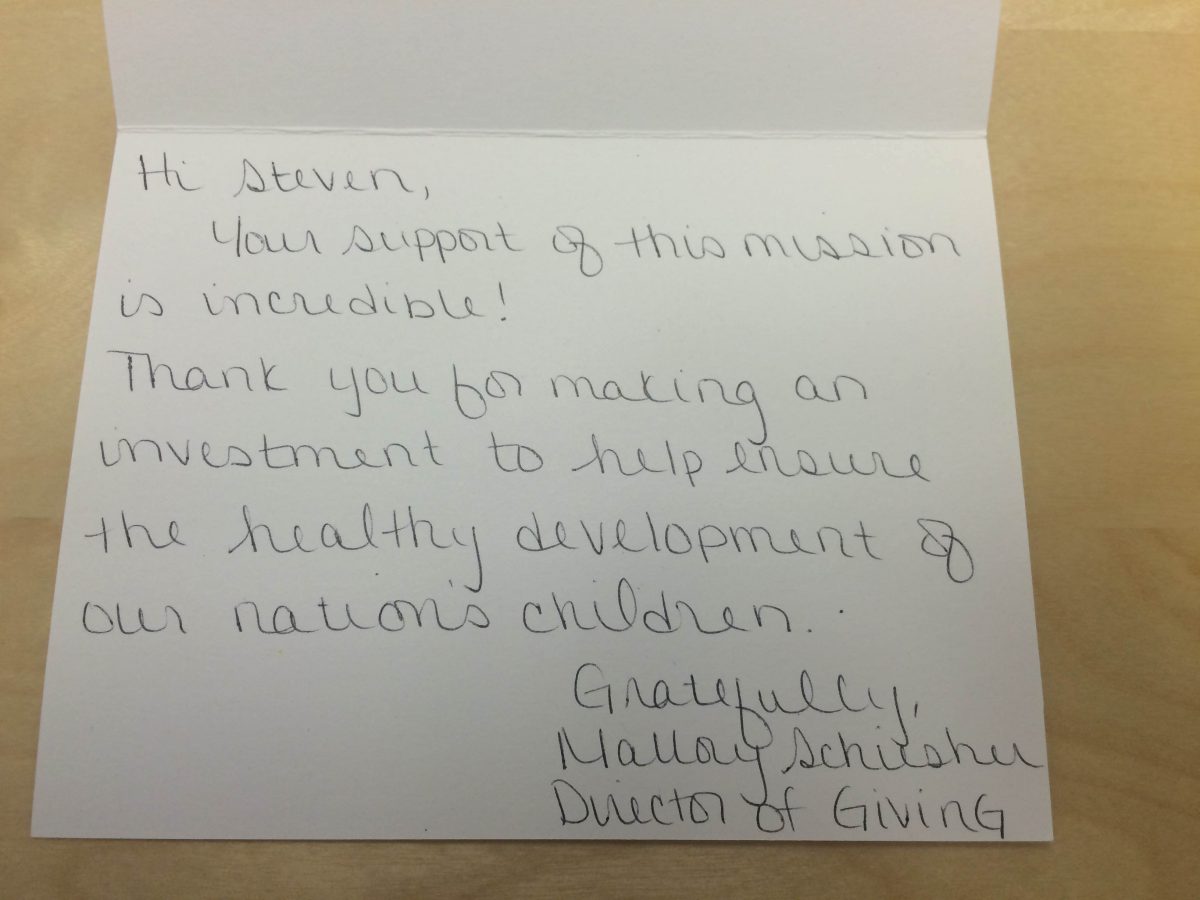 Hi Steven,
Your support of this mission
is incredible!
Thank you for making an
investment to help ensure
the healthy development of
our nation's children.
Gratefully,
Mallory
Director of Giving